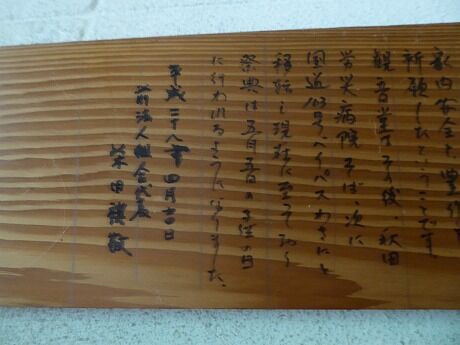 家内安全と、豊作
祈願したということです。
観音堂はその後、秋田
労災病院そば、次に
国道103号、バイパスわきにと
移転し現在に至っており
祭典は五月五日の子供の日
に行われるようになりました。
平成二十八年四月吉日
前法人組合代表
栄田